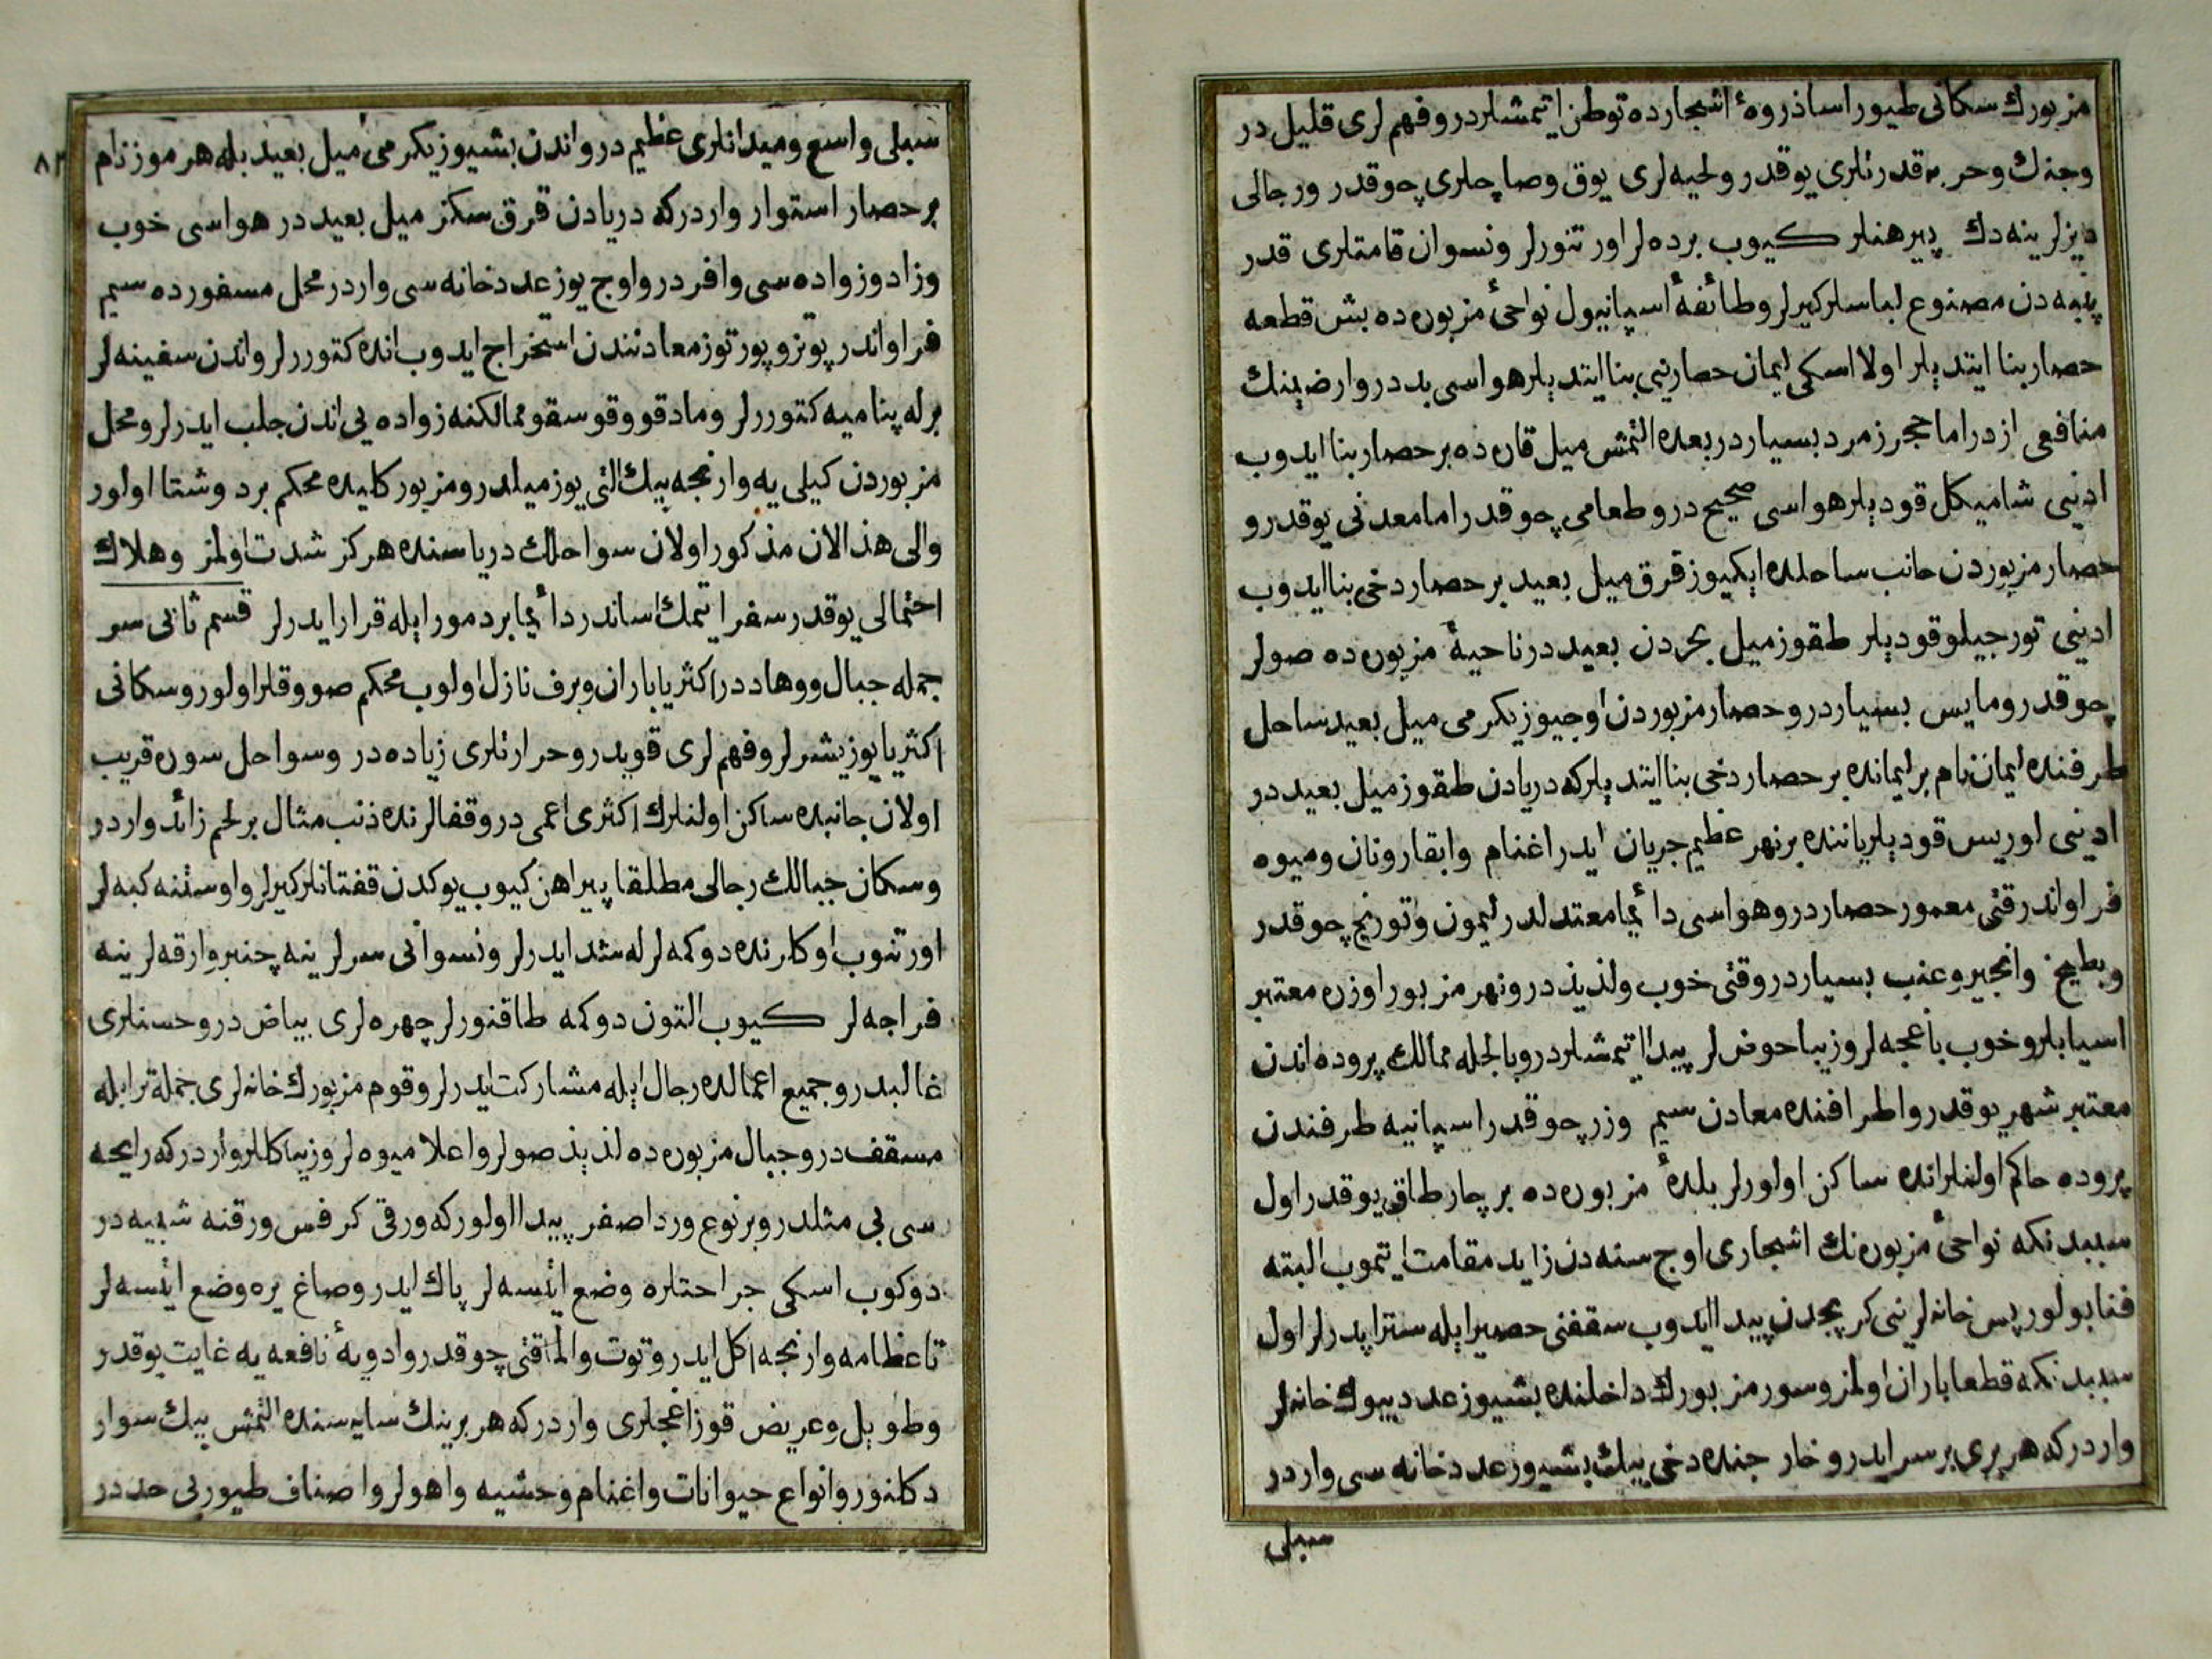 مزبورك سكانى طيور اسا ذروۀ اشجارده توطن ايتمشلردر و فهم لرى قليل در
و جنك و حربه قدرتلرى يوقدر و لحيه لرى يوق و صاچلرى چوقدر و رجالى
ديزلرينه دك پيرهنلر كيوب برده لر اورتنورلر و نسوان قامتلرى قدر
پنبه دن مصنوع لباسلر كيرلر و طائفۀ اسپانيول نواحئ مزبوره ده بش قطعه
حصار بنا ايتديلر اولا اسكى ليمان حصارينى بنا ايتديلر هواسى بد در و ارضينك
منافعى ازدر اما حجر زمرد بسياردر بعده التمش ميل قاره ده بر حصار بنا ايدوب
ادينى شاميكل قوديلر هواسى صحيح در و طعامى چوقدر اما معدنى يوقدر و
حصار مزبوردن جانب ساحلده ايكيوز قرق ميل بعيد بر حصار دخى بنا ايدوب
ادينى تورجيلو قوديلر طقوز ميل بحردن بعيددر ناحيۀ مزبوره ده صولر
چوقدر و مايس بسياردر و حصار مزبوردن اوچيوز يكرمى ميل بعيد ساحل
طرفنده ليمان نام بر ليمانده بر حصار دخى بنا ايتديلر كه دريادن طقوز ميل بعيد در
ادينى لوريس قوديلر ياننده بر نهر عظيم جريان ايدر اغنام و ابقار و نان و ميوه
فراواندر قتى معمور حصاردر و هواسى دائما معتدلدر ليمون و تورنج چوقدر
و بطيخ و انجير و عنب بسياردر و قتى خوب و لذيذ در و نهر مزبور اوزره معتبر
اسيابلر و خوب باغچه لر و زيبا حوضلر پيدا ايتمشلردر و بالجمله ممالك پروده اندن
معتبر شهر يوقدر و اطرافنده معادن سيم و زر چوقدر اسپانيه طرفندن
پروده حاكم اولنلر انده ساكن اولورلر بلدۀ مزبوره ده بر چار طاق يوقدر اول
سببدنكه نواحئ مزبوره نك اشجارى اوچ سنه دن زايد مقامت ايتميوب البته
فنا بولور پس خانه لرينى كرپجدن پيدا ايدوب سقفنى حصير ايله ستر ايدرلر اول
سببدنكه قطعا باران اولمز و سور مزبورك داخلنده بشيوز عدد بيوك خانه لر
واردر كه هر برى بر سرايدر و خارجنده دخى بيك بشيوز عدد خانه سى واردر
سبلى
٨٢
سبلى واسع و ميدانلرى عظيم در و اندن بشيوز يكرمى ميل بعيد بله هرموز نام
بر حصار استوار واردر كه دريادن قرق سكز ميل بعيد در هواسى خوب
و زاد و زواده سى وافر در و اوچ يوز عدد خانه سى واردر محل مسفورده سيم
فراواندر پوتزو پورتوز معادنندن استخراج ايدوب انده كتوررلر و اندن سفينه لر
برله پناميه كتوررلر و مادقو و قوسقو ممالكنه زواده يى اندن جلب ايدرلر و محل
مزبوردن كيلى يه وارنجه بيك التى يوز ميلدر و مزبور كليده محكم برد و شتا اولور
و الى هذا الان مذكور اولان سواحلك درياسنده هركز شدت اولمز و هلاك
احتمالى يوقدر سفر ايتمك اساندر دائما بر دمور ايله قرار ايدرلر قسم ثانى سر
جمله جبال و وهاددر اكثريا باران و برف نازل اولوب محكم صووقلر اولور و سكانى
اكثريا يوزيشرلر و فهم لرى قويدر و حرارتلرى زياده در و سواحل سوره قريب
اولان جانبده ساكن اولنلرك اكثرى اعمى در و قفالرنده ذنب مثال بر لحم زائد واردر
و سكان جبالك رجالى مطلقا پيراهن كيوب يوكدن قفتانلر كيرلر و اوستنه كبه لر
اورتنوب اوكلرنده دوكمه لرله شد ايدرلر و نسوانى سرلرينه چنبر و ارقه لرينه
فراجه لر كيوب التون دوكمه طاقنورلر چهره لرى بياض در و حسنلرى
غالبدر و جميع اعمالده رجال ايله مشاركت ايدرلر و قوم مزبورك خانه لرى جملة تر ايله
مسقف در و جبال مزبوره ده لذيذ صولر و اعلا ميوه لر و زيبا كللر واردر كه رايحه
سى بى مثلدر و بر نوع ورد اصفر پيدا اولور كه ورقى كرفس ورقنه شبيه در
دوكوب اسكى جراحتلره وضع ايتسه لر پاك ايدر و صاغ يره وضع ايتسه لر
تا عظامه وارنجه اكل ايدر و توت و الما قتى چوقدر و ادويۀ نافعه يه غايت يوقدر
و طويل و عريض قوز اغجلرى واردر كه هر برينك سايه سنده التمش بيك سوار
دكلنور و انواع حيوانات و اغنام وحشيه و اهولر و اصناف طيور بى حد در